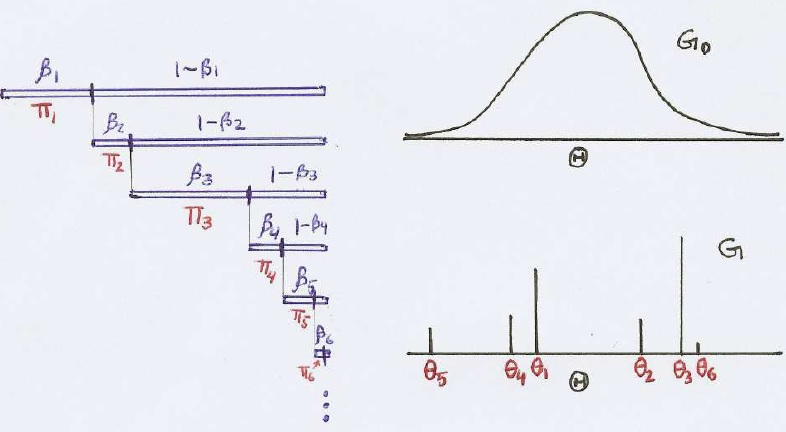 β₁ 1-β₁
π₁
β₂ 1-β₂
π₂
β₃ 1-β₃
π₃
β₄ 1-β₄
π₄
β₅
π₅
β₆
π₆
G₀
Θ
G
θ₅ θ₄ θ₁ θ₂ θ₃ θ₆
Θ